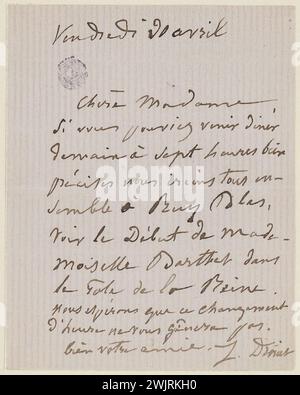 Vendredi 20 avril
Chère Madame
Si vous pouviez venir dîner
demain à sept heures bien
précises nous irions tous en-
semble à Ruy Blas,
voir le Début de Made-
moiselle Barthet dans
le Role de la Reine.
Nous espérons que ce changement
d'heure ne vous gênera pas.
bien votre amie. J. Drouet
alamy
Image ID: 2WJRKH0
www.alamy.com